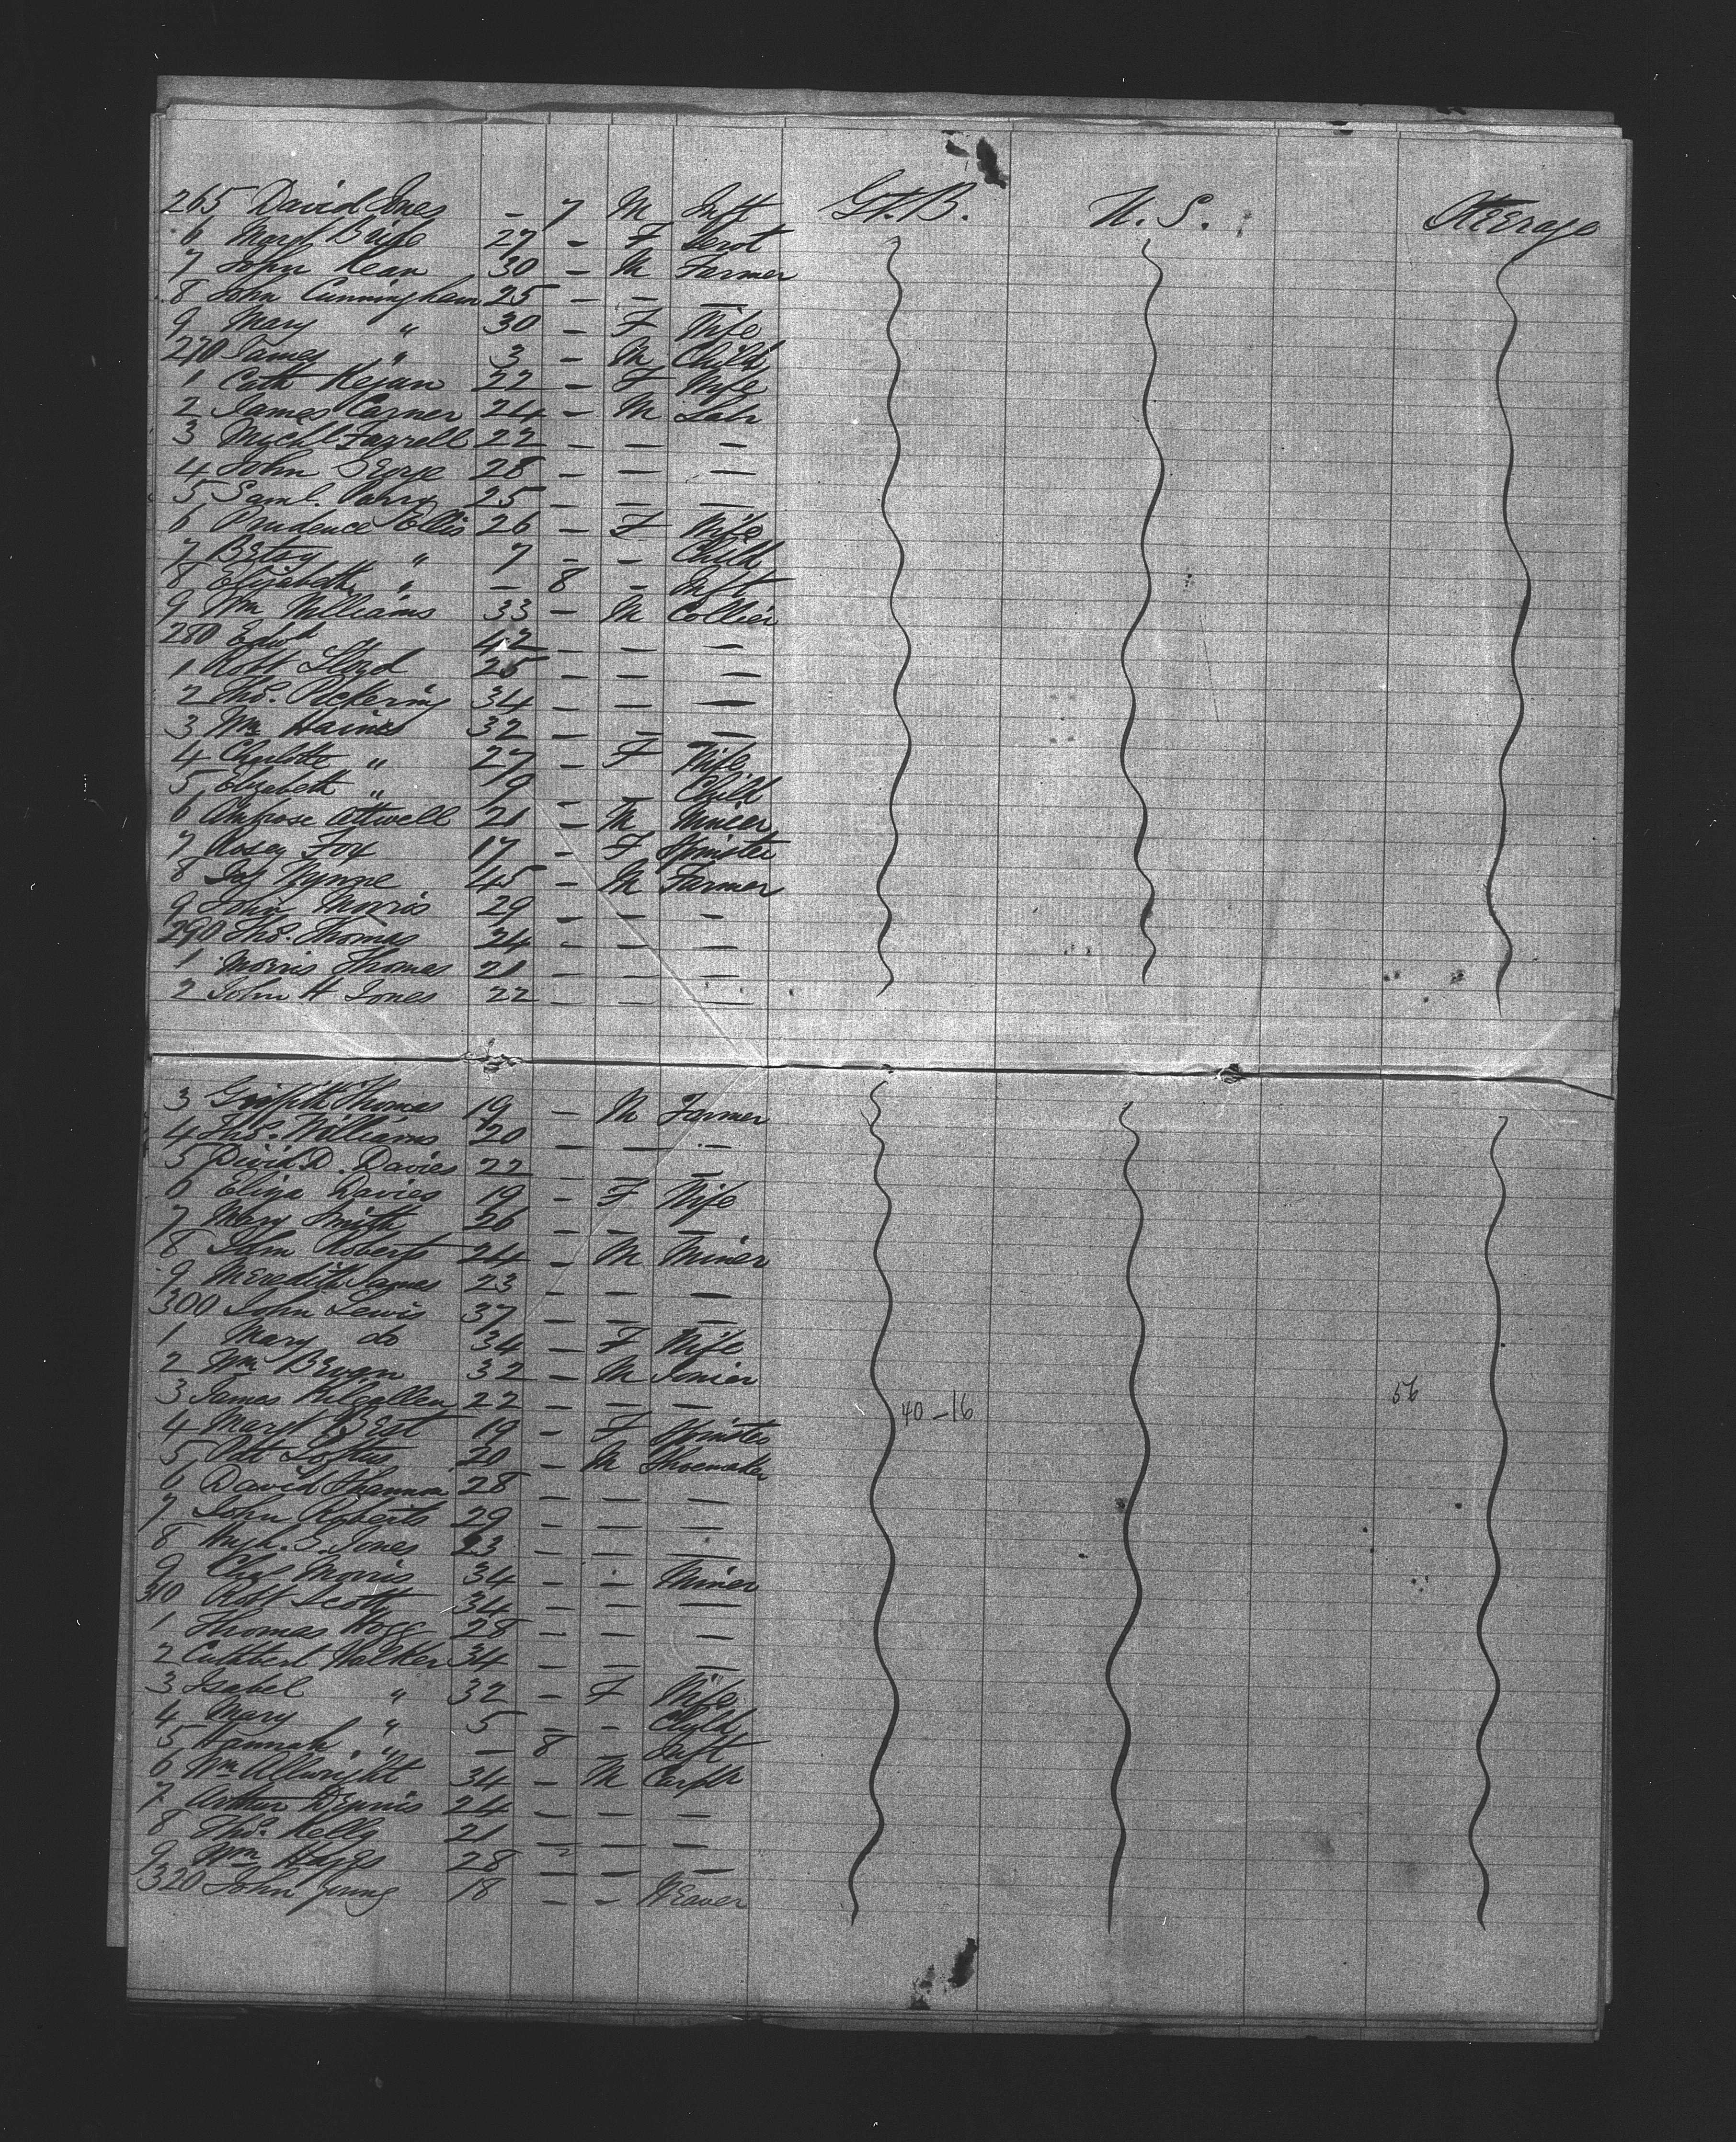 265 David Jones - 7 M Inft Gt. B. U. S. Steerage
6 Mary 27 - F Servt
7 John Kean 30 - M Farmer
8 John Cunningham 25 - - -
9 Mary " 30 - F Wife
270 James " 3 - M Child
1 Cath Kegan 22 - F Wife
2 James Carner 24 - M Labr
3 Mychl Farrell 22 - - -
4 John George 28 - - -
5 Saml. Parry 25 - - -
6 Prudence Ellis 26 - F Wife
7 Betsy " 7 - - Child
8 Elizabeth " - 8 - Inft
9 Wm Williams 33 - M Collier
280 Edwd 42 - - -
1 Robt Lloyd 25 - - -
2 Thos. Pickering 34 - - -
3 Wm Haines 32 - - -
4 Charlotte " 27 - F Wife
5 Elizabeth " 9 - - Child
6 Ambrose Attwell 21 - M Miner
7 Rosey Fox 17 - F Spinster
8 Jas Wynne 45 - M Farmer
9 John Morris 29 - - -
290 Thos. Thomas 24 - - -
1 Morris Thomas 21 - - -
2 John H Jones 22 - - -
3 Griffith Thomas 19 - M Farmer
4 Thos. Williams 20 - - -
5 David D. Davies 22 - - -
6 Eliza Davies 19 - F Wife
7 Mary Smith 26 - - -
8 John Roberts 24 - M Miner
9 Meredith James 23 - - -
300 John Lewis 37 - - -
1 Mary do 34 - F Wife
2 Wm Bevan 32 - M Joiner
3 James Kilgallen 22 - - - 40-16 56
4 Margt Best 19 - F Spinster
5 Pat Loftus 20 - M Shoemaker
6 David Shannon 28 - - -
7 John Roberts 29 - - -
8 Hugh. S. Jones 23 - - -
9 Chas Morris 34 - - Miner
310 Robt Scott 34 - - -
1 Thomas Hogg 28 - - -
2 Cuthbert Walker 34 - - -
3 Isabel " 32 - F Wife
4 Mary " 5 - - Child
5 Hannah " - 8 - Inft
6 Wm Allwright 34 - M Carptr
7 Arthur Dennis 24 - - -
8 Thos. Kelly 21 - - -
9 Wm Hayes 28 - - -
320 John Young 18 - - Weaver